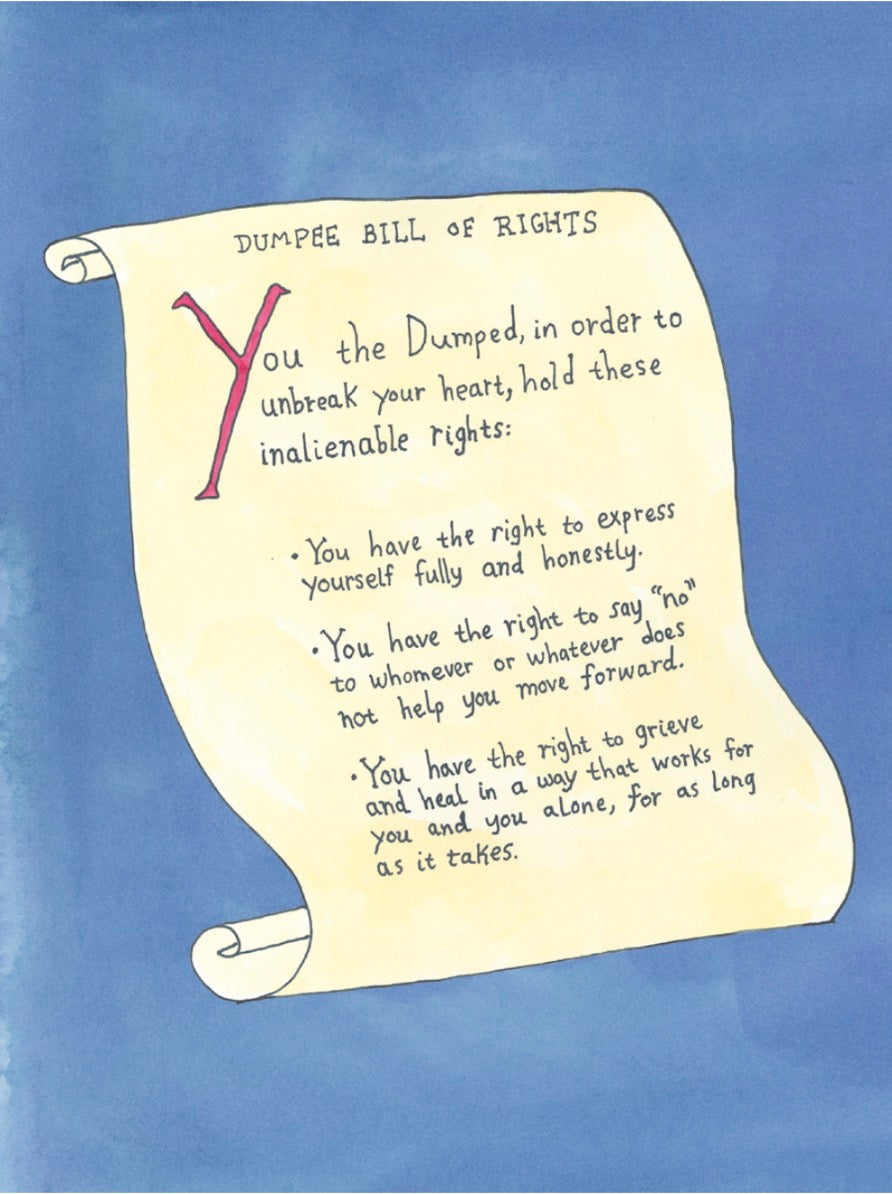 DUMPEE BILL OF RIGHTS
You the Dumped, in order to
unbreak your heart, hold these
inalienable rights:
• You have the right to express
yourself fully and honestly.
• You have the right to say “no”
to whomever or whatever does
not help you move forward.
• You have the right to grieve
and heal in a way that works for
you and you alone, for as long
as it takes.